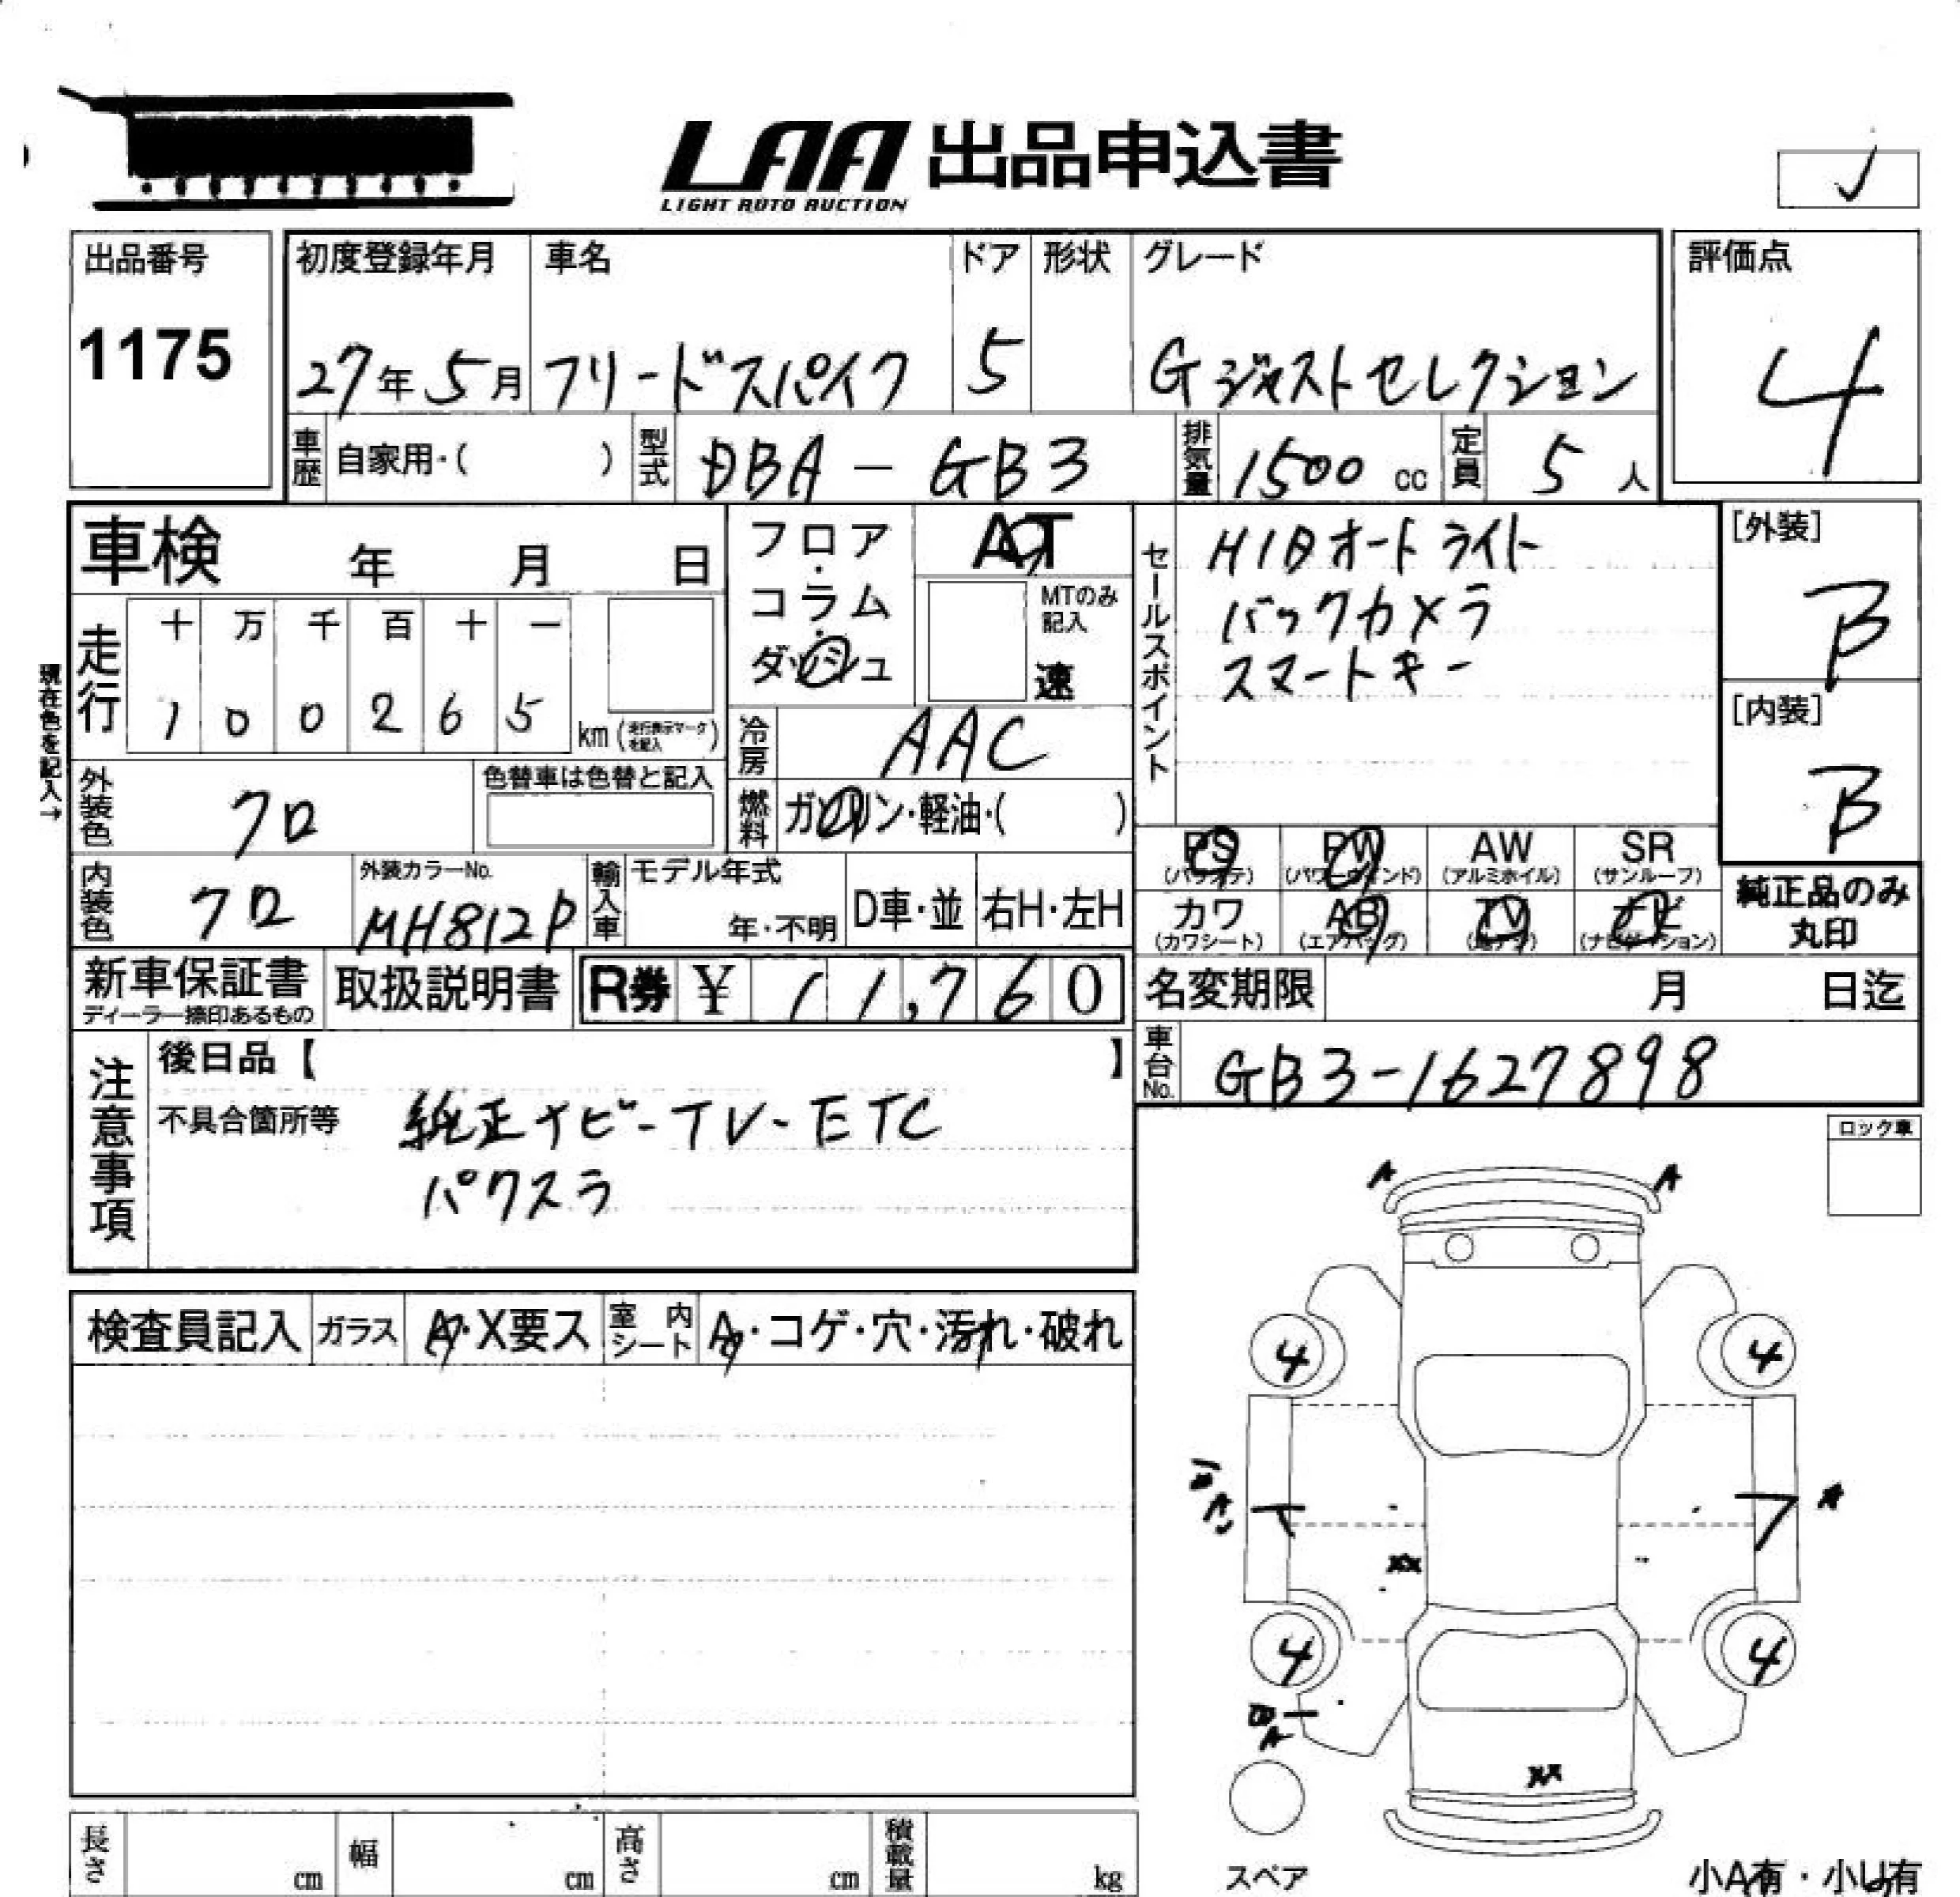 LAA 出品申込書
LIGHT AUTO AUCTION
出品番号
1175
初度登録年月
27年5月
車名
フリードスパイク
ドア
5
形状
グレード
Gジャストセレクション
評価点
4
車歴 自家用・( )
型式 DBA-GB3
排気量 1500 cc
定員 5人
車検 年 月 日
フロア・コラム・ダッシュ
AT
MTのみ記入
速
セールスポイント
HIDオートライト
バックカメラ
スマートキー
[外装]
B
[内装]
B
現在色を記入→
走行
十 万 千 百 十 一
1 0 0 2 6 5
km(走行表示マークを記入)
冷房 AAC
外装色 クロ
色替車は色替と記入
燃料 ガソリン・軽油・( )
内装色 クロ
外装カラーNo.
MH812P
輸入車
モデル年式
年・不明
D車・並
右H・左H
PS (パワステ)
PW (パワーウィンド)
AW (アルミホイル)
SR (サンルーフ)
カワ (カワシート)
AB (エアバッグ)
TV (地デジ)
ナビ (ナビゲーション)
純正品のみ
丸印
新車保証書
ディーラー捺印あるもの
取扱説明書
R券 ¥ 11,760
名変期限 月 日迄
注意事項
後日品【 】
不具合箇所等 純正ナビ-TV-ETC
パワスラ
車台No. GB3-1627898
ロック車
検査員記入
ガラス A・X要ス
室内シート A・コゲ・穴・汚れ・破れ
A A
4 4
A
XX
4 4
A
XX
スペア
長さ cm
幅 cm
高さ cm
積載量 kg
小A有・小U有